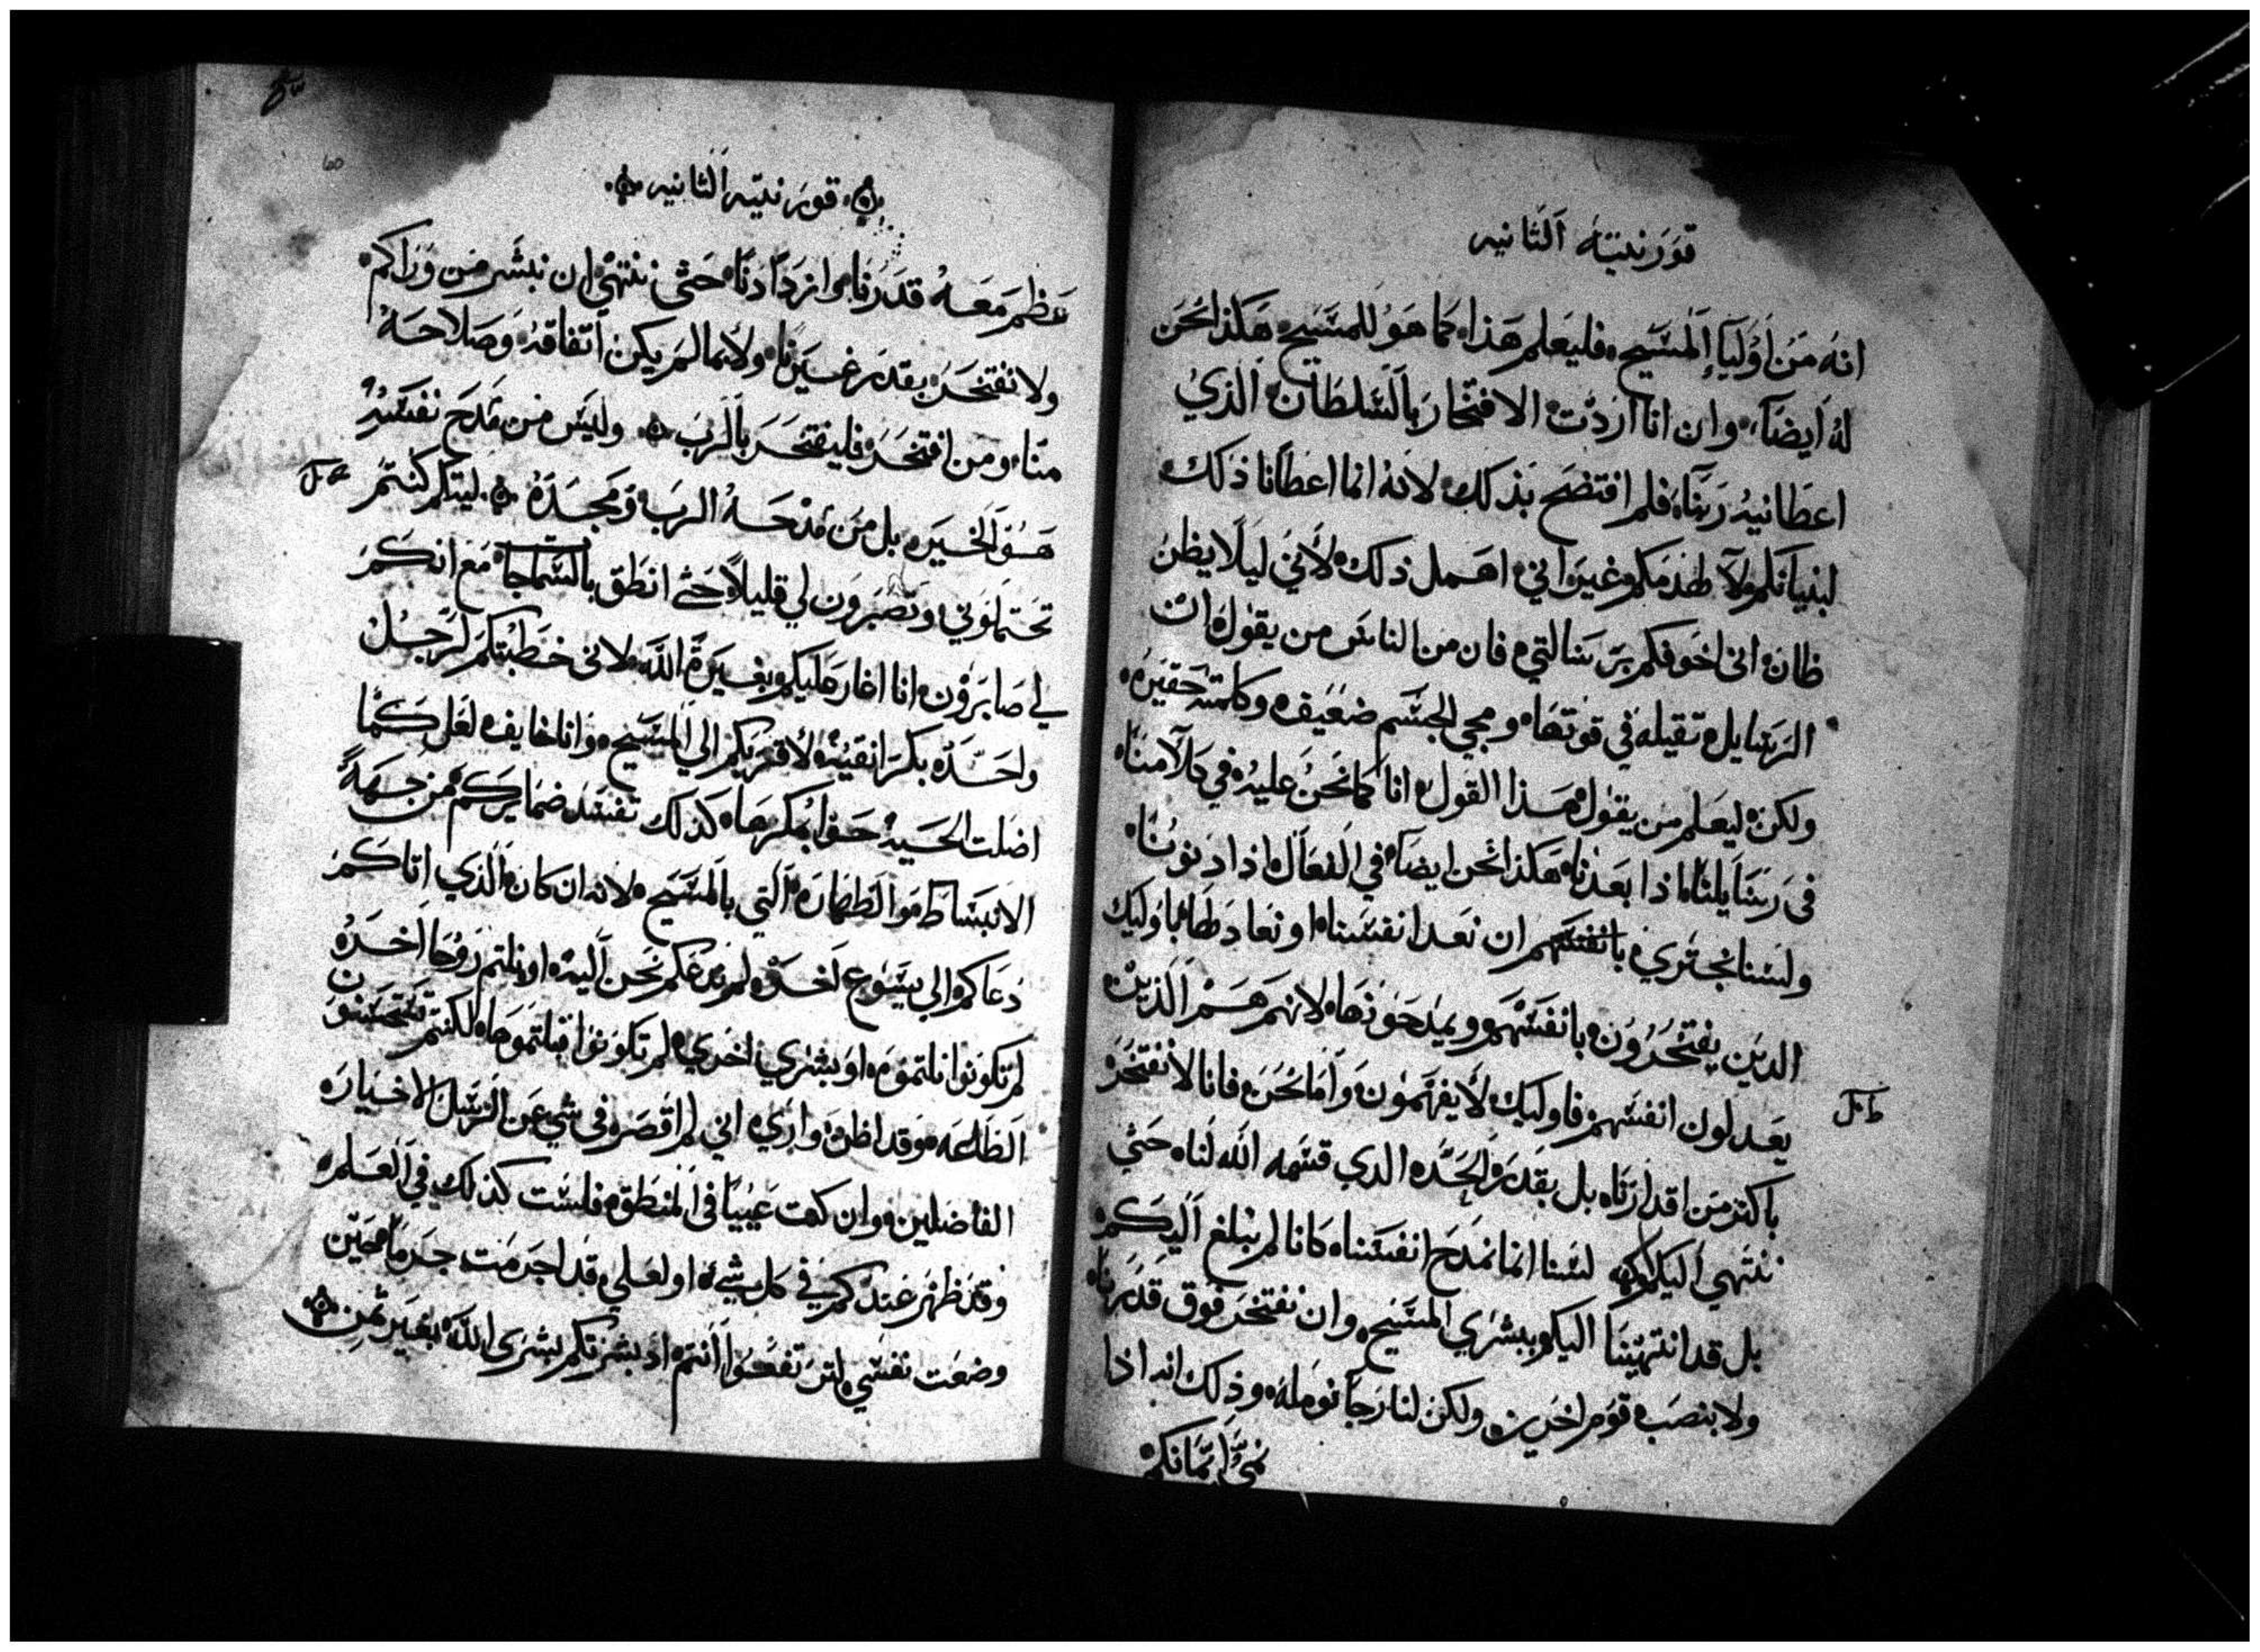 قورنتيه الثانيه
انه من اوليآ المسيح فليعلم هذا كما هو للمسيح هكذا نحن
له ايضآ وان انا اردت الافتخار بالسلطان الذي
اعطانيه ربنا فلم افتضح بذلك لانه انما اعطانا ذلك
لبنيانكم ولا لهدمكم غير اني اهمل ذلك لأني ليلا يظن
ظان اني اخوفكم برسالتي فان من الناس من يقول ان
الرسايل تقيله في قوتها ومجي الجسم ضعيف وكلمته حقيره
ولكن ليعلم من يقول هذا القول انا كما نحن عليه في كلامنا
في رسايلنا اذا بعدنا هكذا نحن ايضآ في الفعال اذا دنونا
ولسنا نجتري بانفسهم ان نعد انفسنا او نعادلها باوليك
الدين يفتخرون بانفسهم ويمدحونها لانهم هم الذين
يعدلون انفسهم فاوليك لا يفهمون واما نحن فانا لا نفتخر
ط
باكتر من اقدارنا بل بقدر الحد الدي قسمه الله لنا حتي
ننتهي اليكم لسنا انما نمدح انفسنا كانا لم نبلغ اليكم
بل قد انتهينا اليكم ببشري المسيح وان نفتخر فوق قدرنا
ولا بنصب قوم اخرين ولكن لنا رجآ نومله وذلك انه اذا
نمي ايمانكم
60
قورنتيه الثانيه
عظم معه قدرنا وازددنا حتي ننتهي ان نبشر من وراكم
ولا نفتخر بقدر غيرنا ولأنما لم يكن اتفاقه وصلاحه
منا ومن افتخر فليفتخر بالرب وليس من مدح نفسه
هو الخير بل من مدحه الرب ومجده ليتكم كنتم
تحتملوني وتصبرون لي قليلاً حتي انطق بالسماجا مع انكم
لي صابرون انا اغار عليكم بغيرة الله لاني خطبتكم لرجل
واحد بكرا نقيه لأقربكم الي المسيح وانا خايف لعل كما
اضلت الحيه حوا بمكرها كذلك تفسد ضمايركم من جهة
الانبساط والطهاره التي بالمسيح لانه ان كان الذي اتاكم
دعاكم الي يسوع اخر لم ندعكم نحن اليه او نلتم روحا اخر
لم تكونوا نلتموه او بشري اخري لم تكونوا قبلتموها لكنتم تستحسنون
الطاعه وقد اظن واري اني لم اقصر في شي عن الرسل الاخيار
الفاضلين وان كنت عيبيا في المنطق فلست كذلك في العلم
وقد ظهر عندكم في كل شي او لعلي قد اجرمت جرما حين
وضعت نفسي لترتفعوا انتم اذ بشرتكم بشرى الله بغير ثمن